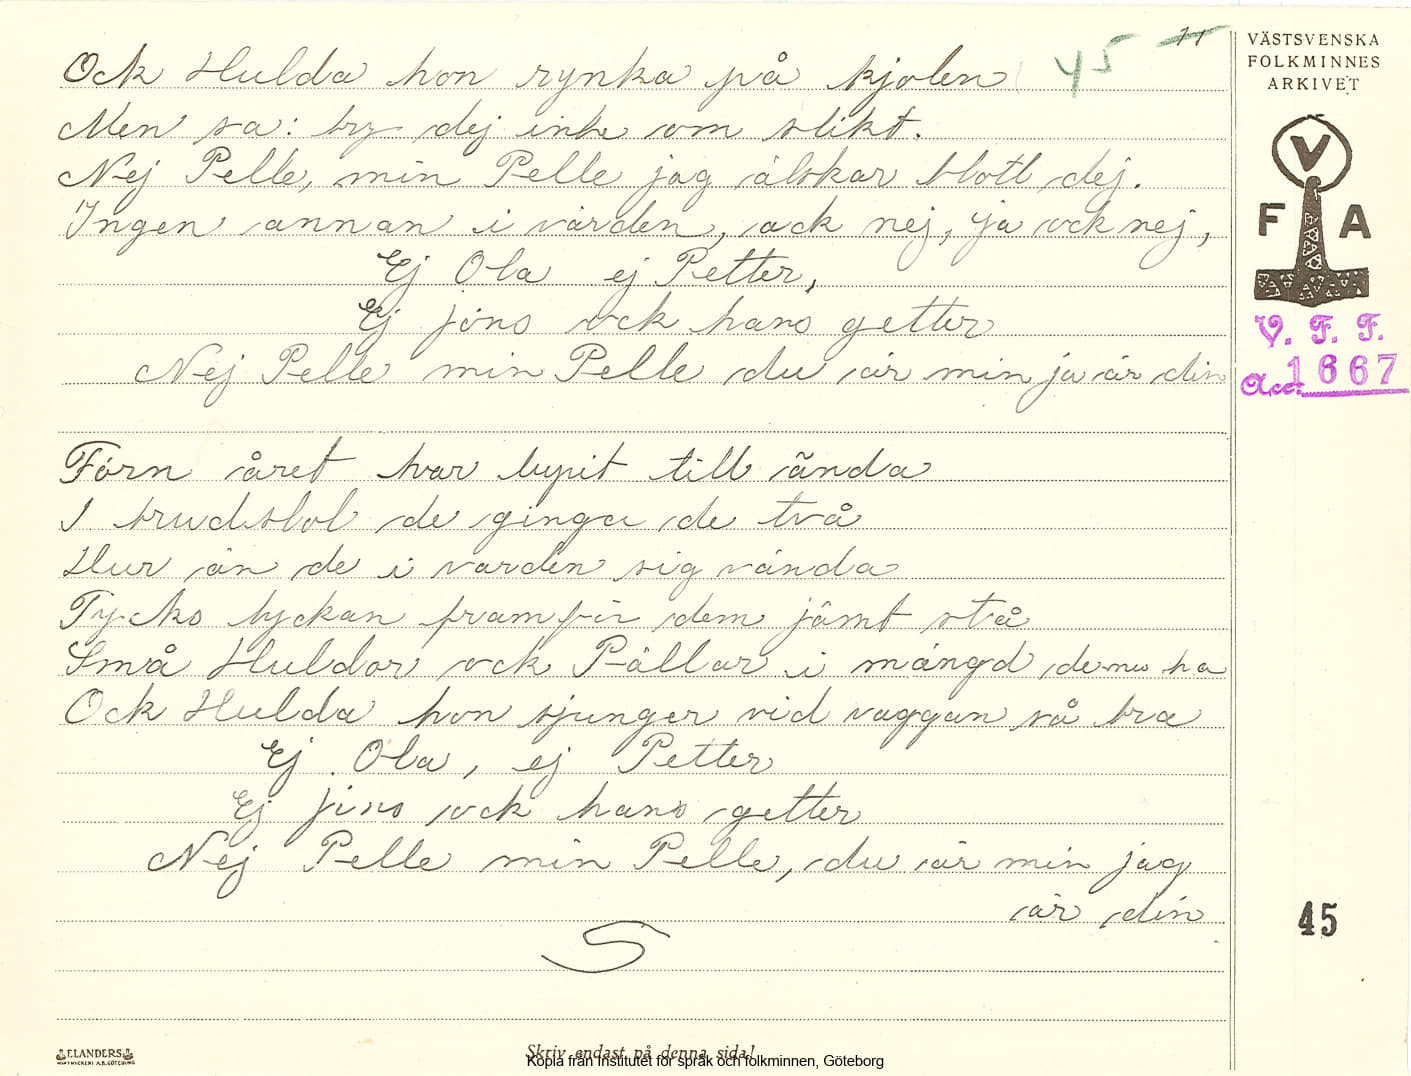 45 11
Ock Hulda hon rynka på kjolen
Men sa: bry dej inte om slikt.
Nej Pelle, min Pelle jag älskar blott dej.
Ingen annan i värden, ack nej, ja ock nej,
Ej Ola ej Petter,
Ej Jöns ock hans getter
Nej Pelle min Pelle du är min ja är din
Förn året har lupit till ända
I brudstol de ginga de två
Hur än de i varden sig vända
Tycks lyckan framför dem jämt stå
Små Huldor ock Pällar i mängd de nu ha
Ock Hulda hon sjunger vid vaggan så bra
Ej Ola, ej Petter
Ej Jöns ock hans getter
Nej Pelle min Pelle, du är min jag
är din
VÄSTSVENSKA
FOLKMINNES
ARKIVET
V
F A
V. F. F.
Acc. 1667
45
ELANDERS
Skriv endast på denna sida!
Kopia från Institutet för språk och folkminnen, Göteborg